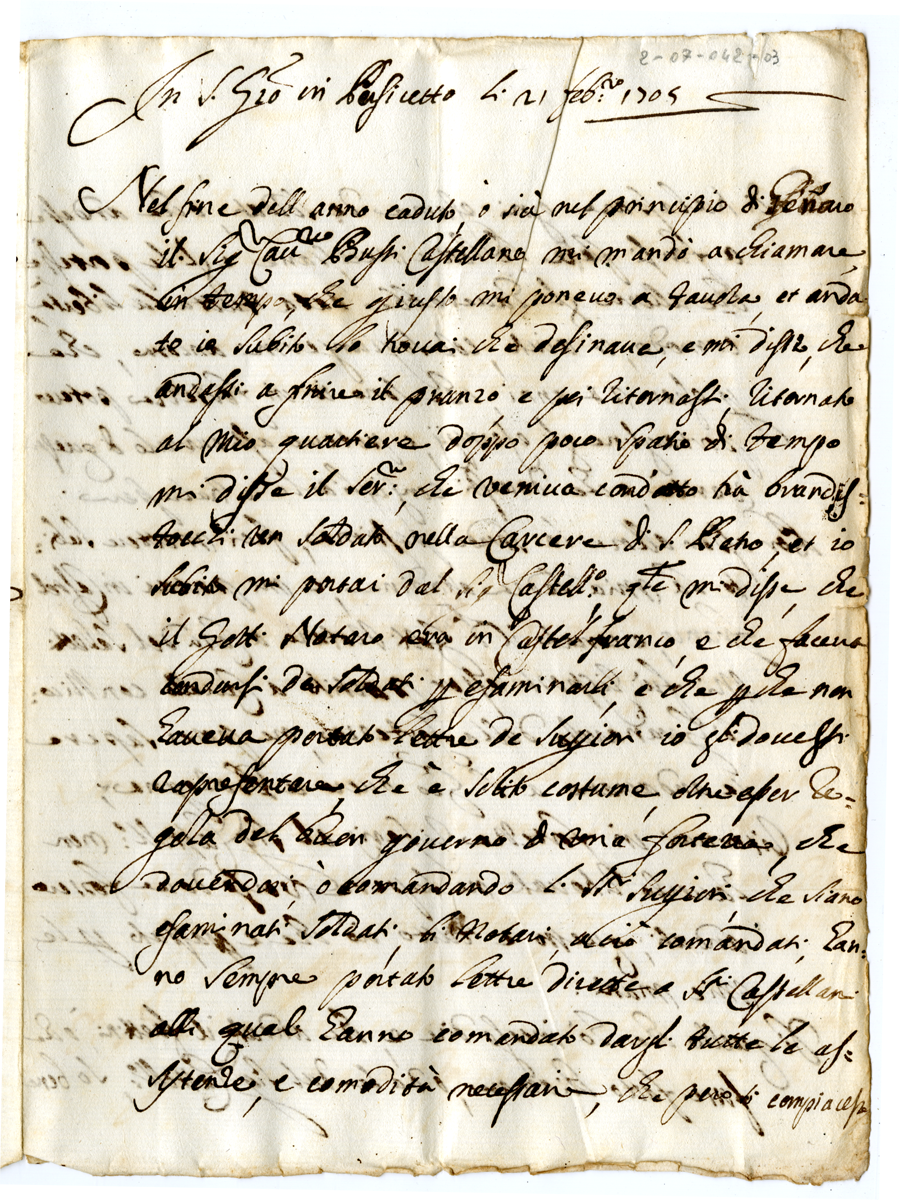 2-07-042-03
In S. Gio in Persicetto li 21 feb:ro 1705
Nel fine dell anno caduto, ò sia nel principio di Genaro
il Sig Cau Bussi Castellano mi mandò a chiamare
in tempo, che giusto mi poneuo a tauola, et anda
to io subito lo trouai che desinaua, e mi disse, che
andassi a finire il pranzo e poi ritornassi, ritornato
al mio quartiere doppo poco spatio di tempo
mi disse il Ser:, che veniua condotto trà brandis=
tocchi un soldato nella Carcere di S Pietro, et io
subito mi portai dal Sig Castell.o, qte mi disse, che
il Sott Notaro era in Castel franco, e che faceua
condursi de soldati p esaminarli, e che p che non
haueua portato lettre de Supiori io gli douessi
rapresentare, che è solito costume, oltre esser re=
gola del buon gouerno di una fortezza, che
douendosi, ò comandando li Sri Supiori che siano
esaminati soldati, li Notari, a ciò comandati, han=
no sempre portato lettre dirette a Sri Castellani
alli quali hanno comandato dargli tutte le as=
sistenze, e comodità necessarie, che però si compiacesse